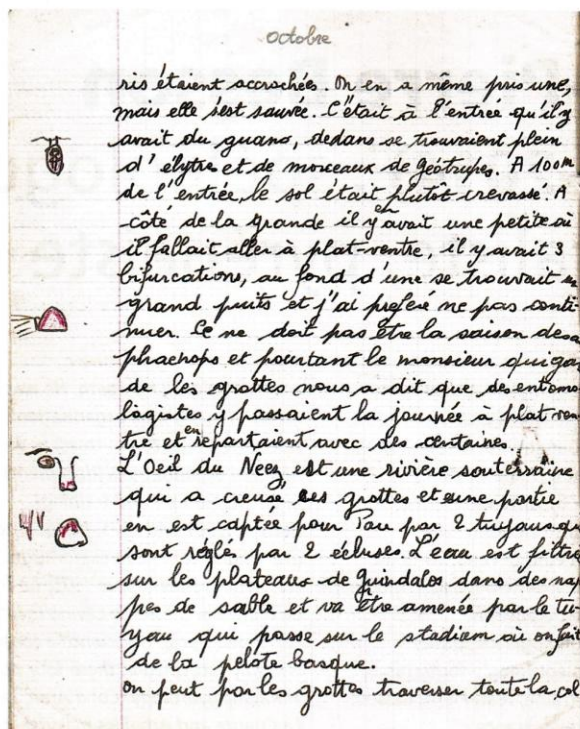 octobre
ris étaient accrochées. On en a même pris une,
mais elle s'est sauvée. C'était à l'entrée qu'il y
avait du guano, dedans se trouvaient plein
d'élytre et de morceaux de géotrupes. A 100m
de l'entrée, le sol était plutôt crevassé. A
côté de la grande il y en avait une petite où
il fallait aller à plat-ventre, il y avait 3
bifurcations, au fond d'une se trouvait un
grand puits et j'ai preferé ne pas conti-
nuer. Ce ne doit pas être la saison des
phaehops et pourtant le monsieur qui gar
de les grottes nous a dit que des entomo
logistes y passaient la journée à plat ven
tre et en repartaient avec des centaines.
L'Oeil du Neez est une rivière souterraine
qui a creusé ses grottes et une partie
en est captée pour Pau par 2 tuyaux qu
sont réglés par 2 écluses. L'eau est filtré
sur les plateaux de Guindalos dans des nap
pes de sable et va être amenée par le tu-
yau qui passe sur le stadium où on fait
de la pelote basque.
On peut par les grottes traverser toute la col